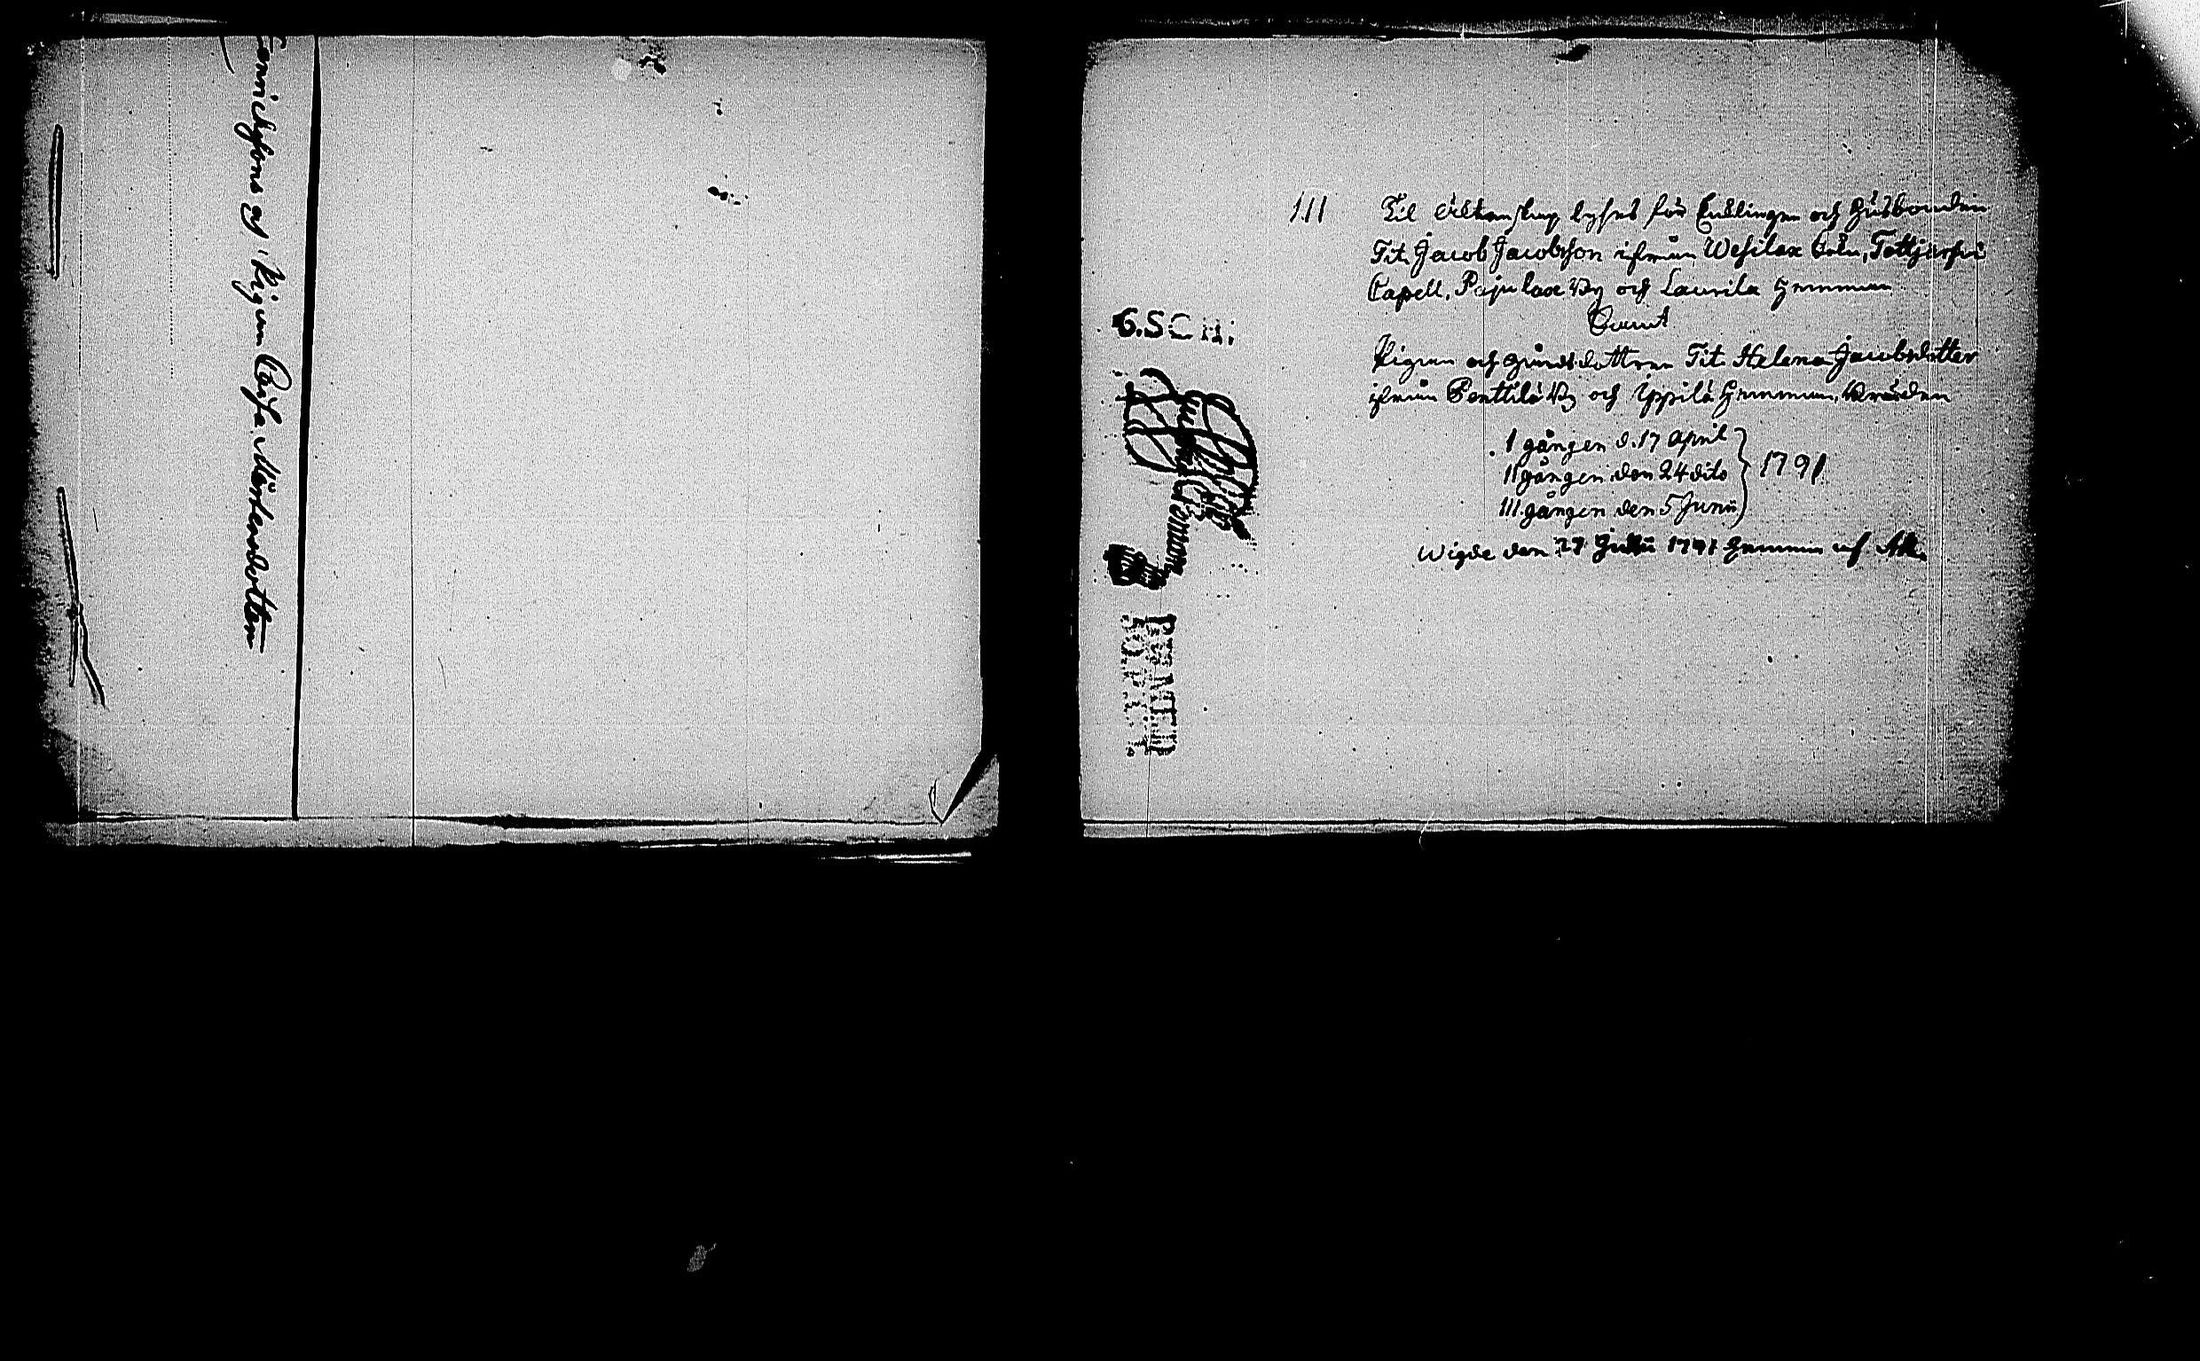 Henrichsons och Pigan Caisa Mårtensdotter
111 Til äktenskap lyses för Enklingen och Husbonden
Tit. Jacob Jacobsson ifrån Wesilax Sokn, Tottjärfvi
Capell, Pajulax By och Laurila Hemman
Samt
Pigan och Gårdsdottren Tit. Helena Jacobsdotter
ifrån Penttilä By och Yppilä Hemman,
1 gången d. 17 April
11 gången den 24 dito
111 gången den 5 Junii
1791
G.SCH.
Wigde den 27 1791 Hemma af